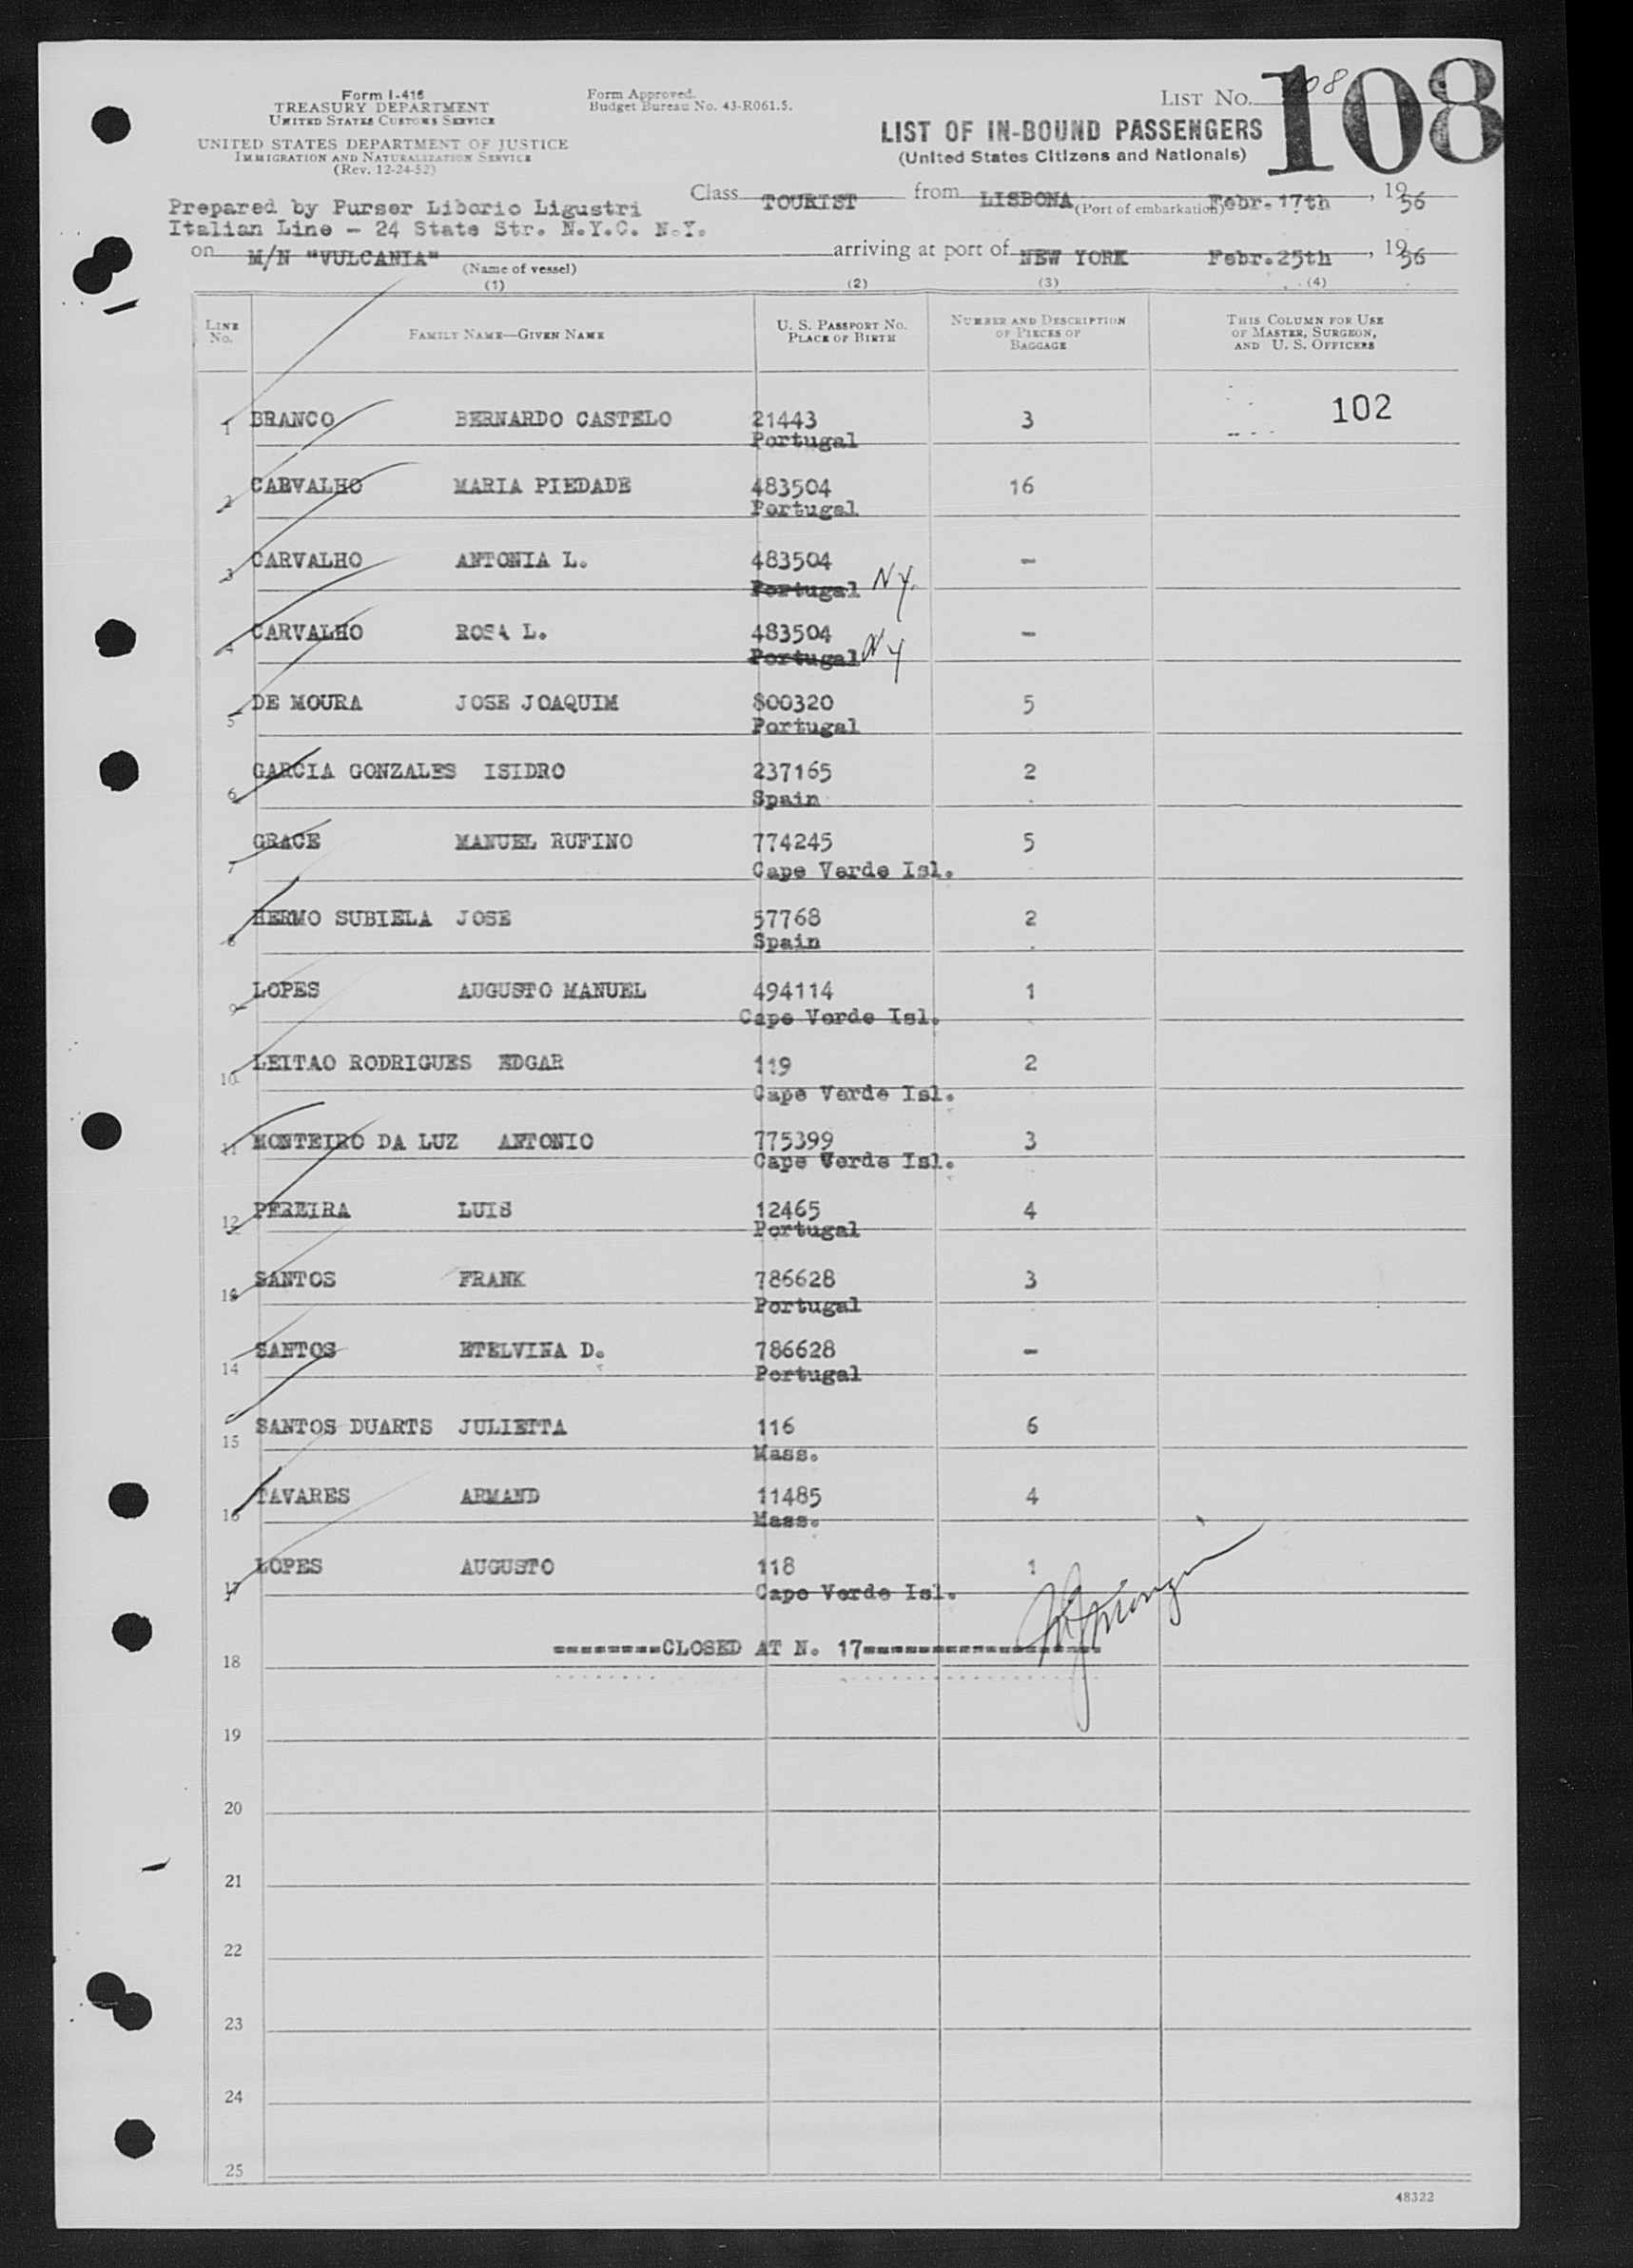 Form I-416
TREASURY DEPARTMENT
UNITED STATES CUSTOMS SERVICE
UNITED STATES DEPARTMENT OF JUSTICE
IMMIGRATION AND NATURALIZATION SERVICE
(Rev. 12-24-52)
Form Approved.
Budget Bureau No. 43-R061.5.
LIST NO. 108
108
LIST OF IN-BOUND PASSENGERS
(United States Citizens and Nationals)
Class TOURIST from LISBONA (Port of embarkation) Febr. 17th, 1956
Prepared by Purser Liborio Ligustri
Italian Line - 24 State Str. N.Y.C. N.Y.
on M/N "VULCANIA" arriving at port of NEW YORK Febr. 25th, 1956
(Name of vessel)
(1) (2) (3) (4)
LINE NO. FAMILY NAME—GIVEN NAME U. S. PASSPORT NO. PLACE OF BIRTH NUMBER AND DESCRIPTION OF PIECES OF BAGGAGE THIS COLUMN FOR USE OF MASTER, SURGEON, AND U. S. OFFICERS
1 BRANCO BERNARDO CASTELO 21443 3 102
Portugal
2 CARVALHO MARIA PIEDADE 483504 16
Portugal
3 CARVALHO ANTONIA L. 483504 -
Portugal NY.
4 CARVALHO ROSA L. 483504 -
Portugal NY
5 DE MOURA JOSE JOAQUIM 800320 5
Portugal
6 GARCIA GONZALES ISIDRO 237165 2
Spain
7 GRACE MANUEL RUFINO 774245 5
Cape Verde Isl.
8 HERMO SUBIELA JOSE 57768 2
Spain
9 LOPES AUGUSTO MANUEL 494114 1
Cape Verde Isl.
10 LEITAO RODRIGUES EDGAR 119 2
Cape Verde Isl.
11 MONTEIRO DA LUZ ANTONIO 775399 3
Cape Verde Isl.
12 PEREIRA LUIS 12465 4
Portugal
13 SANTOS FRANK 786628 3
Portugal
14 SANTOS ETELVINA D. 786628 -
Portugal
15 SANTOS DUARTS JULIETTA 116 6
Mass.
16 TAVARES ARMAND 11485 4
Mass.
17 LOPES AUGUSTO 118 1
Cape Verde Isl.
18 ========CLOSED AT N. 17==================
19
20
21
22
23
24
25
48322